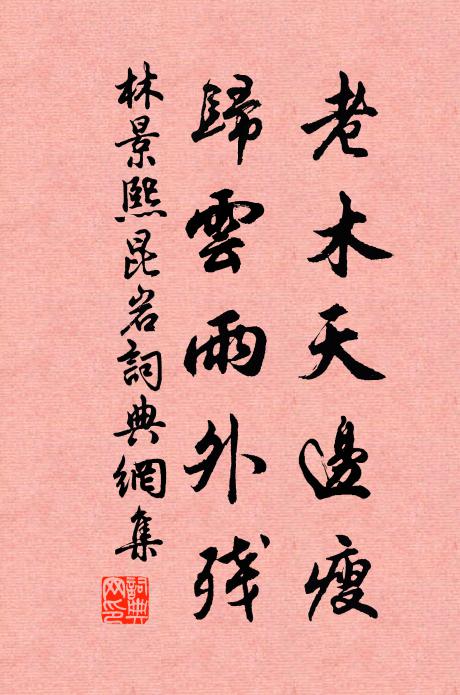 老木天邊瘦
歸雲雨外殘
林景熙昆岩詞典網集
詞典網印